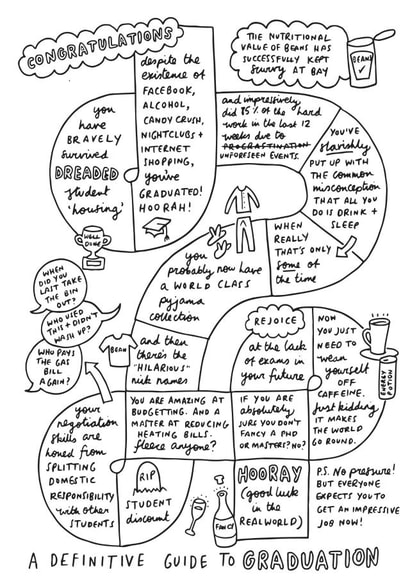 CONGRATULATIONS
despite the
existence of
FACEBOOK,
ALCOHOL,
CANDY CRUSH,
NIGHTCLUBS +
INTERNET
SHOPPING,
you've
GRADUATED!
HOORAH!
THE NUTRITIONAL
VALUE OF BEANS HAS
SUCCESSFULLY KEPT
Scurvy AT BAY
BEANS
you
have
BRAVELY
survived
DREADED
student
'housing'
WELL
DONE
and impressively
did 85% of the hard
work in the last 12
weeks due to
PROCRASTINATION
UNFORESEEN EVENTS.
YOU'VE
slavishly
PUT UP WITH
THE common
misconception
THAT ALL YOU
DO IS DRINK +
SLEEP
WHEN
REALLY
THAT'S ONLY
some of
the time
you
probably now have
a WORLD CLASS
pyjama
collection
WHEN
DID YOU
LAST TAKE
THE BIN
OUT?
WHO USED
THIS + DIDN'T
WASH UP?
WHO PAYS
THE GAS
BILL
AGAIN?
BEAN
and then
there's the
"HILARIOUS"
nick names
REJOICE
at the lack
of exams in
your future
NOW
YOU JUST
NEED TO
wean
yourself
OFF
CAFFEINE.
Just kidding
IT MAKES
THE WORLD
GO ROUND.
ENERGY
POTION
your
negotiation
skills are
honed from
SPLITTING
DOMESTIC
RESPONSIBILITY
with other
STUDENTS
YOU ARE AMAZING AT
BUDGETTING. AND A
MASTER AT REDUCING
HEATING BILLS.
fleece anyone?
IF YOU ARE
absolutely
SURE YOU DON'T
FANCY A PHD
OR MASTERS? NO?
RIP
STUDENT
discount
FANCY
HOORAY
(good luck
in the
REAL WORLD)
P.S. No pressure!
BUT EVERYONE
EXPECTS YOU TO
GET AN IMPRESSIVE
JOB NOW!
A DEFINITIVE GUIDE TO GRADUATION